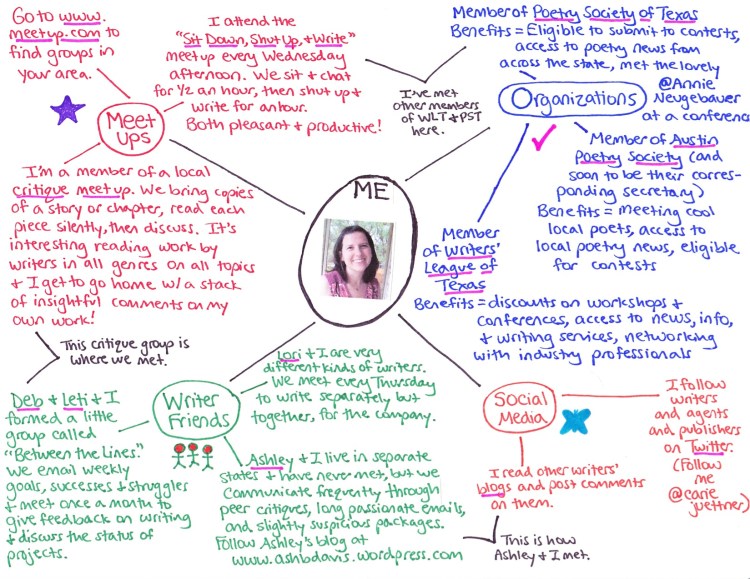 Go to www.
meetup.com to
find groups in
your area.
I attend the
"Sit Down, Shut Up, + Write"
meetup every Wednesday
afternoon. We sit + chat
for ½ an hour, then shut up +
write for an hour.
Both pleasant + productive!
MEET
UPS
I'm a member of a local
critique meetup. We bring copies
of a story or chapter, read each
piece silently, then discuss. It's
interesting reading work by
writers in all genres on all topics
+ I get to go home w/ a stack
of insightful comments on my
own work!
This critique group is
where we met.
I've met
other members
of WLT + PST
here.
ME
Member of Poetry Society of Texas
Benefits = Eligible to submit to contests,
access to poetry news from
across the state, met the lovely
@Annie
Neugebauer
at a conference
Organizations
Member of Austin
Poetry Society (and
soon to be their corres-
ponding secretary)
Benefits = meeting cool
local poets, access to
local poetry news, eligible
for contests
Member
of Writers'
League of
Texas
Benefits = discounts on workshops +
conferences, access to news, info,
+ writing services, networking
with industry professionals
Writer
Friends
Lori + I are very
different kinds of writers.
We meet every Thursday
to write separately but
together, for the company.
Deb + Leti + I
formed a little
group called
"Between the Lines."
We email weekly
goals, successes + struggles
+ meet once a month to
give feedback on writing
+ discuss the status of
projects.
Ashley + I live in separate
states + have never met, but we
communicate frequently through
peer critiques, long passionate emails,
and slightly suspicious packages.
Follow Ashley's blog at
www.ashbdavis.wordpress.com
Social
Media
I follow
writers
and agents
and publishers
on Twitter.
(Follow
me
@carie
juettner)
I read other writers'
blogs and post comments
on them.
This is how
Ashley + I met.